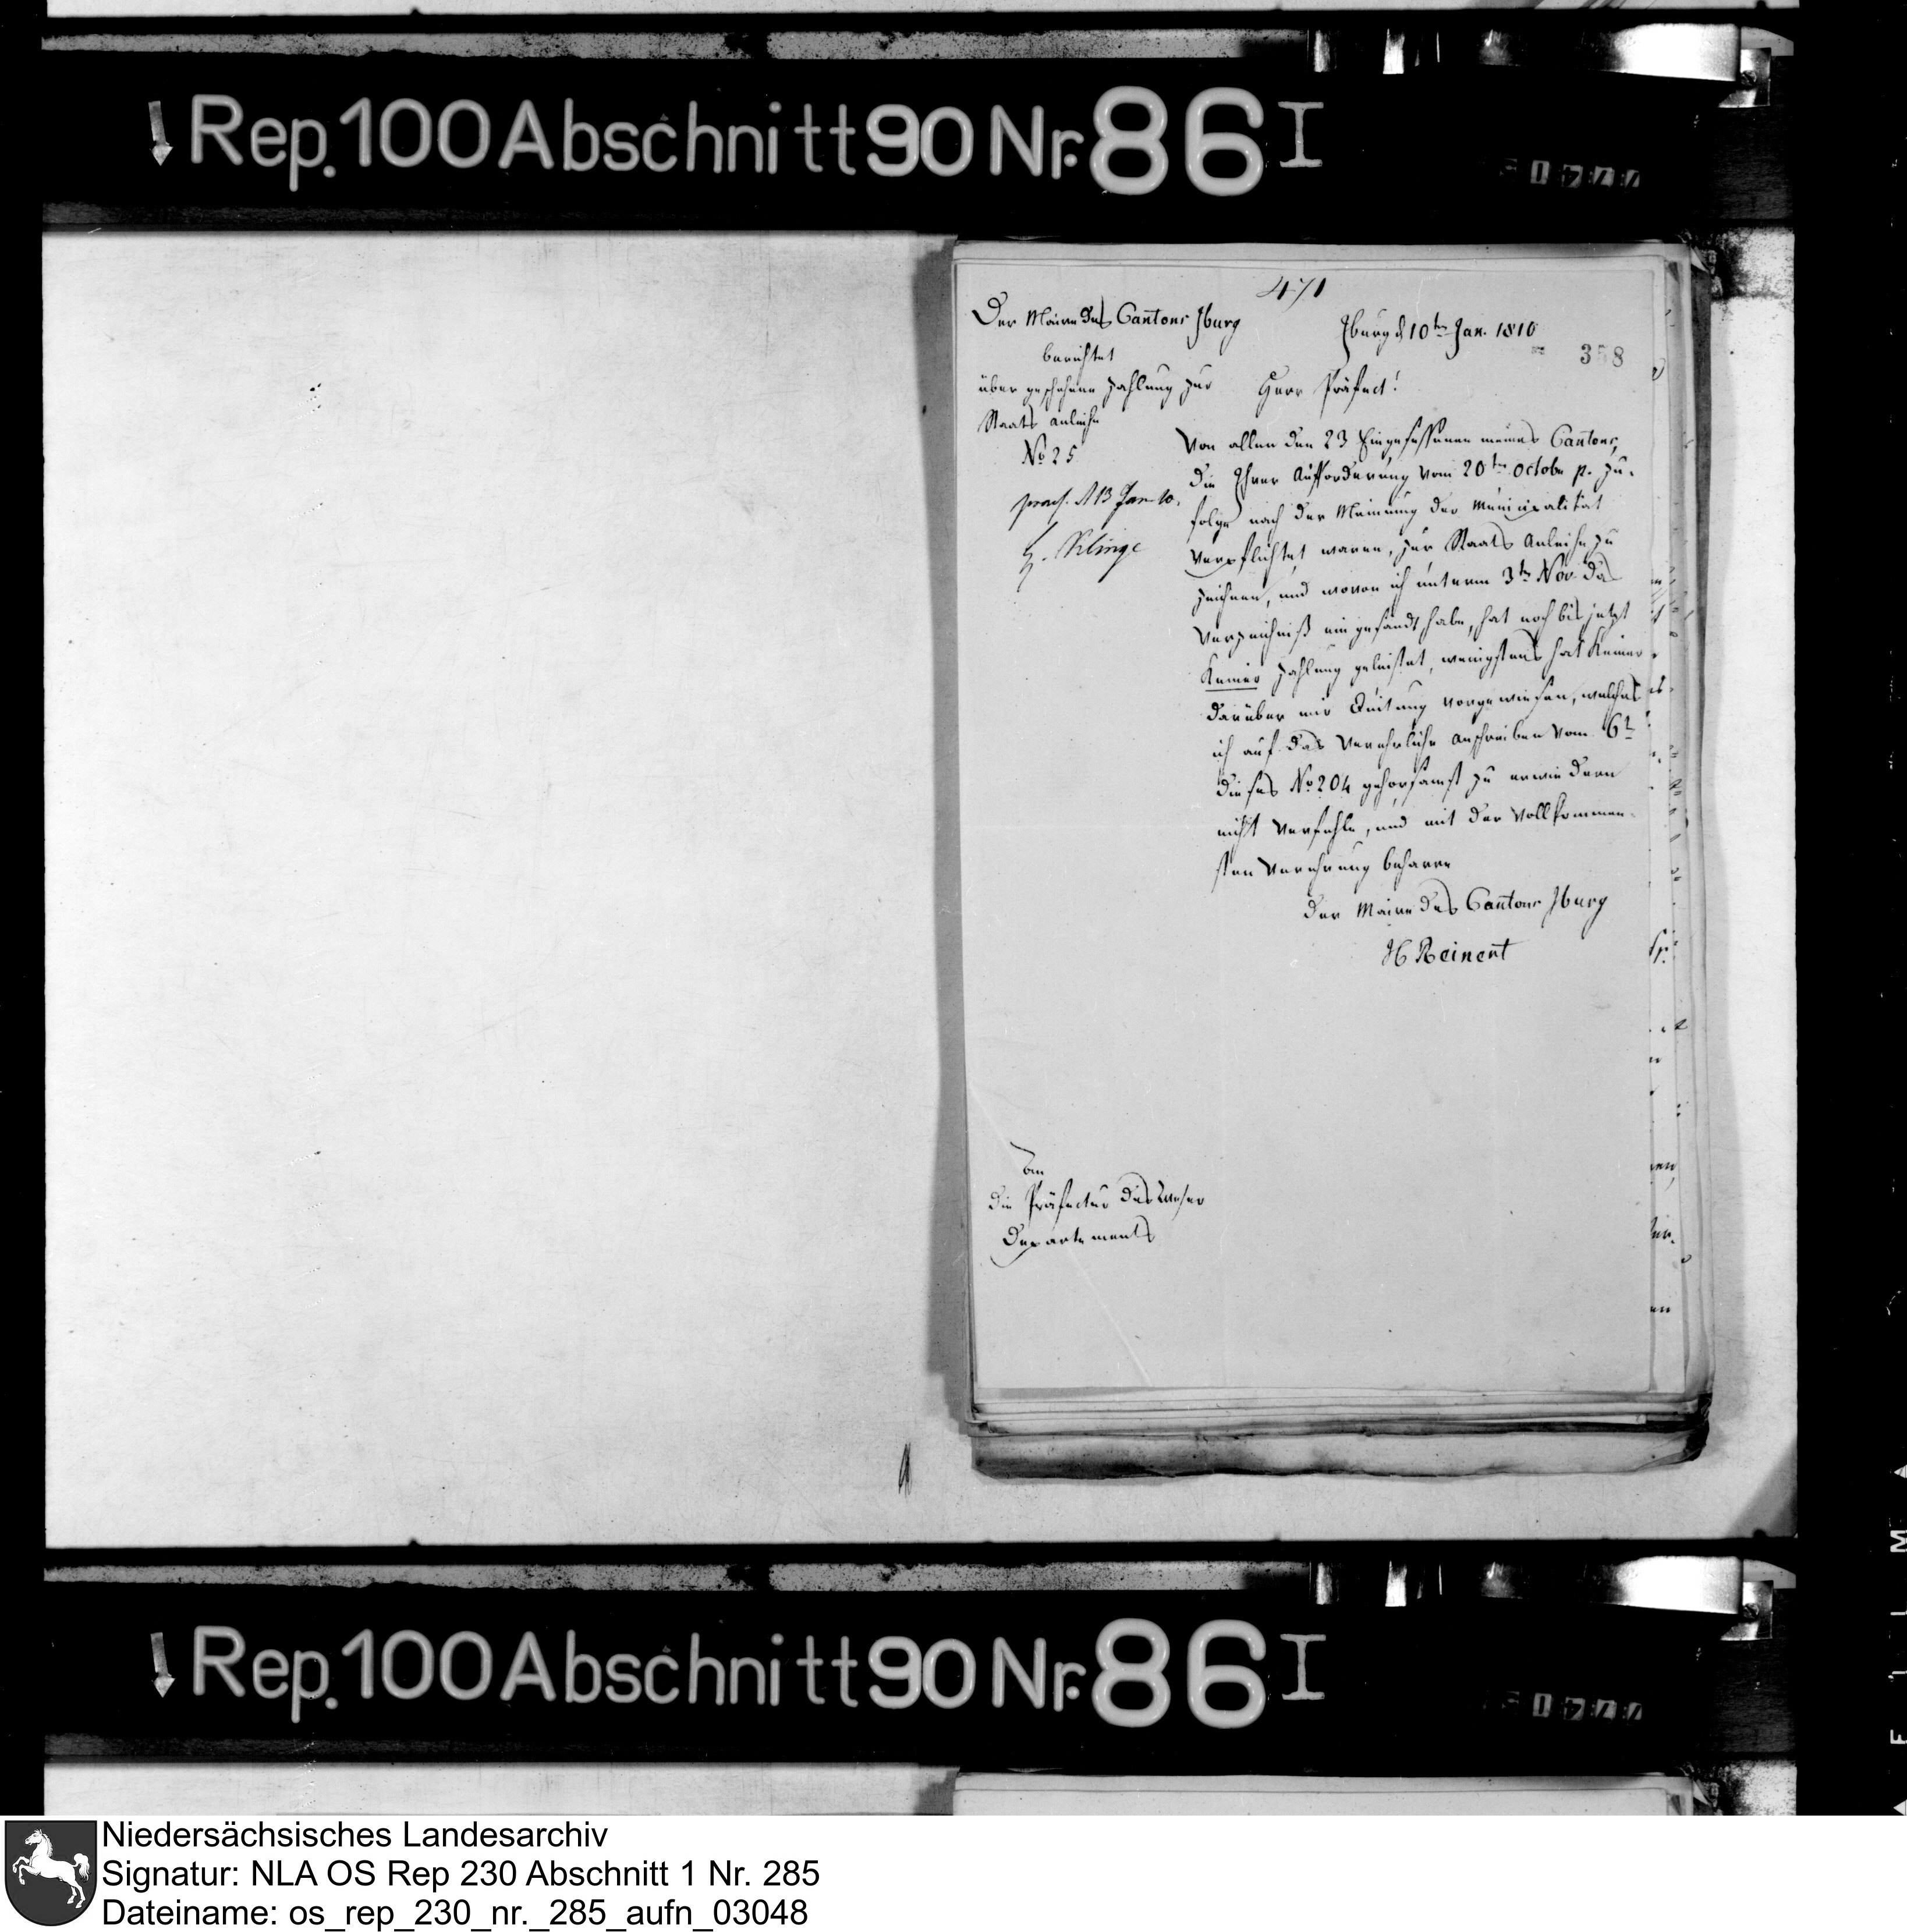 Rep. 100 Abschnitt 90 Nr. 86 I
471
Der Maire des Cantons Iburg
berichtet
über geschehene Zahlung zur
Staats anleihe
No 25
praes. d 13 Jan 10.
Klinge
Iburg d 10ten Jan. 1810
358
Herr Präfect!
Von allen den 23 Eingesessenen meines Cantons,
die Ihrer Aufforderung vom 20ten Octobr p. zu-
folge nach der Meinung der Municipalität
verpflichtet waren, zur Staats Anleihe zu
zeichnen, und wovon ich unterm 3ten Nov. das
Verzeichniß eingesandt habe, hat noch bis jetzt
Keiner Zahlung geleistet, wenigstens hat Keiner
darüber mir Quitung vorgewiesen, welches
ich auf das Verehrliche Anschreiben vom 6t
dieses No 204 gehorsamst zu erwiedern
nicht verfehle, und mit der vollkommen-
sten Verehrung beharre
Der Maire des Cantons Iburg
H Reinert
An
die Präfectur des Weser
Departements
Rep. 100 Abschnitt 90 Nr. 86 I
Niedersächsisches Landesarchiv
Signatur: NLA OS Rep 230 Abschnitt 1 Nr. 285
Dateiname: os_rep_230_nr._285_aufn_03048